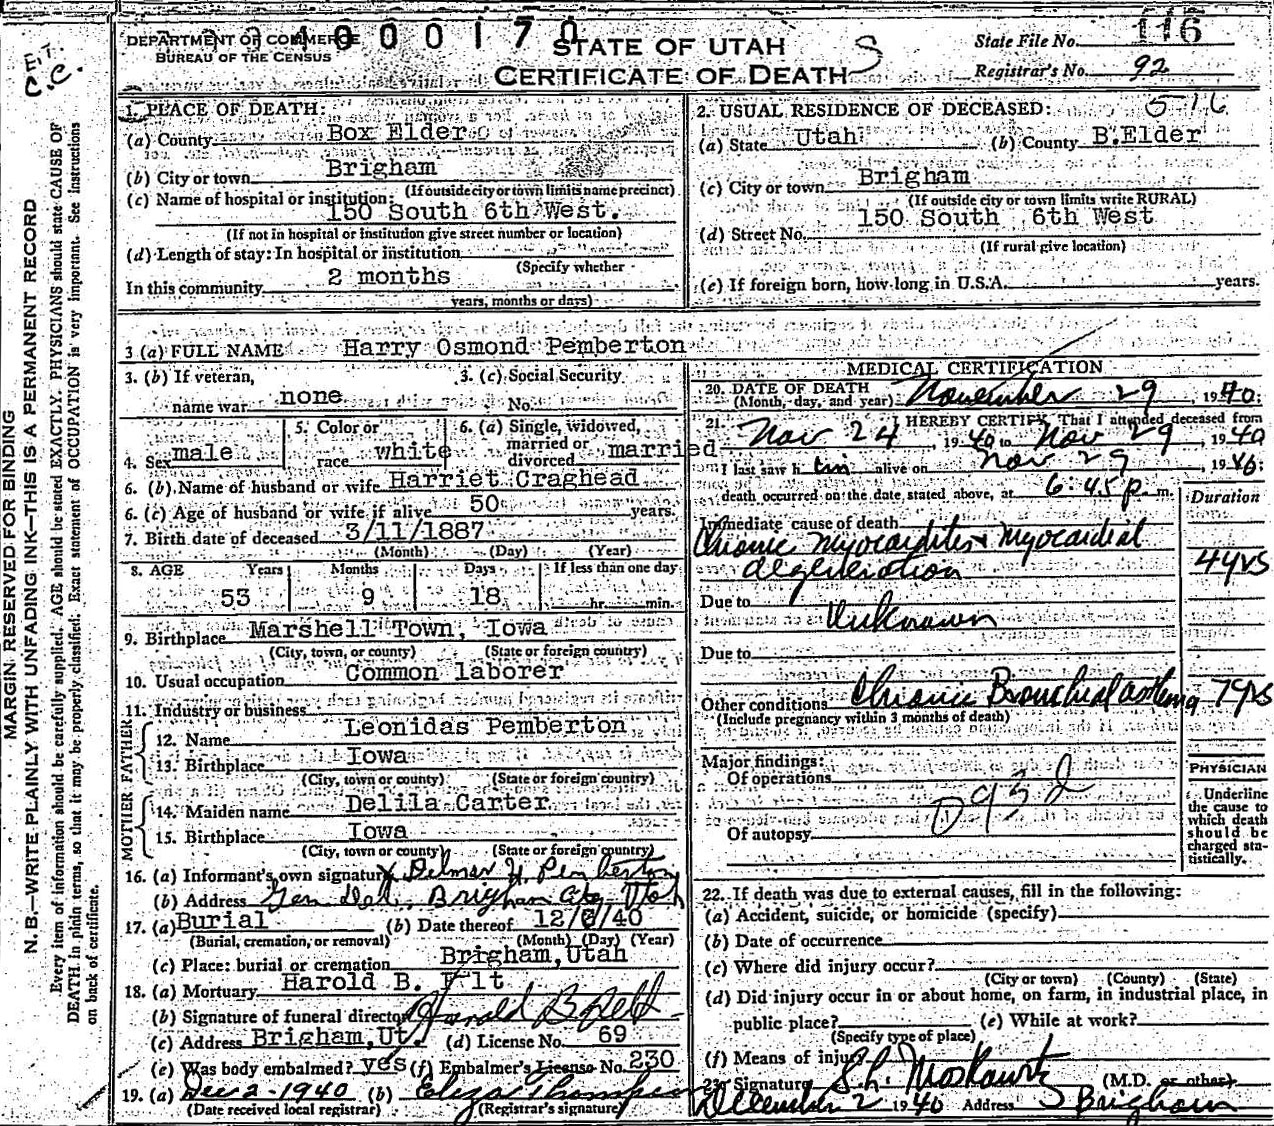 1000170
DEPARTMENT OF COMMERCE
BUREAU OF THE CENSUS
STATE OF UTAH
CERTIFICATE OF DEATH
State File No. 116
Registrar's No. 92
E.T.
C.C.
MARGIN RESERVED FOR BINDING
N. B.—WRITE PLAINLY WITH UNFADING INK—THIS IS A PERMANENT RECORD
Every item of information should be carefully supplied. AGE should be stated EXACTLY. PHYSICIANS should state CAUSE OF
DEATH in plain terms, so that it may be properly classified. Exact statement of OCCUPATION is very important. See instructions
on back of certificate.
1. PLACE OF DEATH:
(a) County Box Elder
(b) City or town Brigham
(If outside city or town limits name precinct)
(c) Name of hospital or institution:
150 South 6th West.
(If not in hospital or institution give street number or location)
(d) Length of stay: In hospital or institution
(Specify whether
In this community 2 months
years, months or days)
2. USUAL RESIDENCE OF DECEASED:
(a) State Utah (b) County B.Elder
(c) City or town Brigham
(If outside city or town limits write RURAL)
(d) Street No. 150 South 6th West
(If rural give location)
(e) If foreign born, how long in U.S.A. years.
3 (a) FULL NAME Harry Osmond Pemberton
3. (b) If veteran, name war none
3. (c) Social Security No.
4. Sex male
5. Color or race white
6. (a) Single, widowed, married or divorced married
6. (b) Name of husband or wife Harriet Craghead
6. (c) Age of husband or wife if alive 50 years.
7. Birth date of deceased 3/11/1887
(Month) (Day) (Year)
8. AGE Years Months Days If less than one day
53 9 18 hr. min.
9. Birthplace Marshell Town, Iowa
(City, town, or county) (State or foreign country)
10. Usual occupation Common laborer
11. Industry or business
FATHER
12. Name Leonidas Pemberton
13. Birthplace Iowa
(City, town or county) (State or foreign country)
MOTHER
14. Maiden name Delila Carter
15. Birthplace Iowa
(City, town or county) (State or foreign country)
16. (a) Informant's own signature Delmar H. Pemberton
(b) Address Gen Del., Brigham City Utah
17. (a) Burial (b) Date thereof 12/ /40
(Burial, cremation, or removal) (Month) (Day) (Year)
(c) Place: burial or cremation Brigham, Utah
18. (a) Mortuary Harold B. F lt
(b) Signature of funeral director Harold B Felt
(c) Address Brigham, Ut. (d) License No. 69
(e) Was body embalmed? yes (f) Embalmer's License No. 230
19. (a) Dec 2-1940 (b) Eliza Thompson
(Date received local registrar) (Registrar's signature)
MEDICAL CERTIFICATION
20. DATE OF DEATH
(Month, day, and year) November 29, 1940.
21. I HEREBY CERTIFY, That I attended deceased from
Nov 24 1940 to Nov 29, 1940
I last saw him alive on Nov 29, 1940:
death occurred on the date stated above, at 6:45 p. m.
Duration
Immediate cause of death
Chronic Myocarditis & Myocardial
degeneration 4 yrs
Due to Unknown
Due to
Other conditions Chronic Bronchial asthma 7 yrs
(Include pregnancy within 3 months of death)
Major findings:
Of operations
Of autopsy
093d
PHYSICIAN
Underline
the cause to
which death
should be
charged sta-
tistically.
22. If death was due to external causes, fill in the following:
(a) Accident, suicide, or homicide (specify)
(b) Date of occurrence
(c) Where did injury occur?
(City or town) (County) (State)
(d) Did injury occur in or about home, on farm, in industrial place, in
public place? (e) While at work?
(Specify type of place)
(f) Means of injury
23. Signature S.h. Moskowitz (M.D. or other)
December 2 1940 Address Brigham